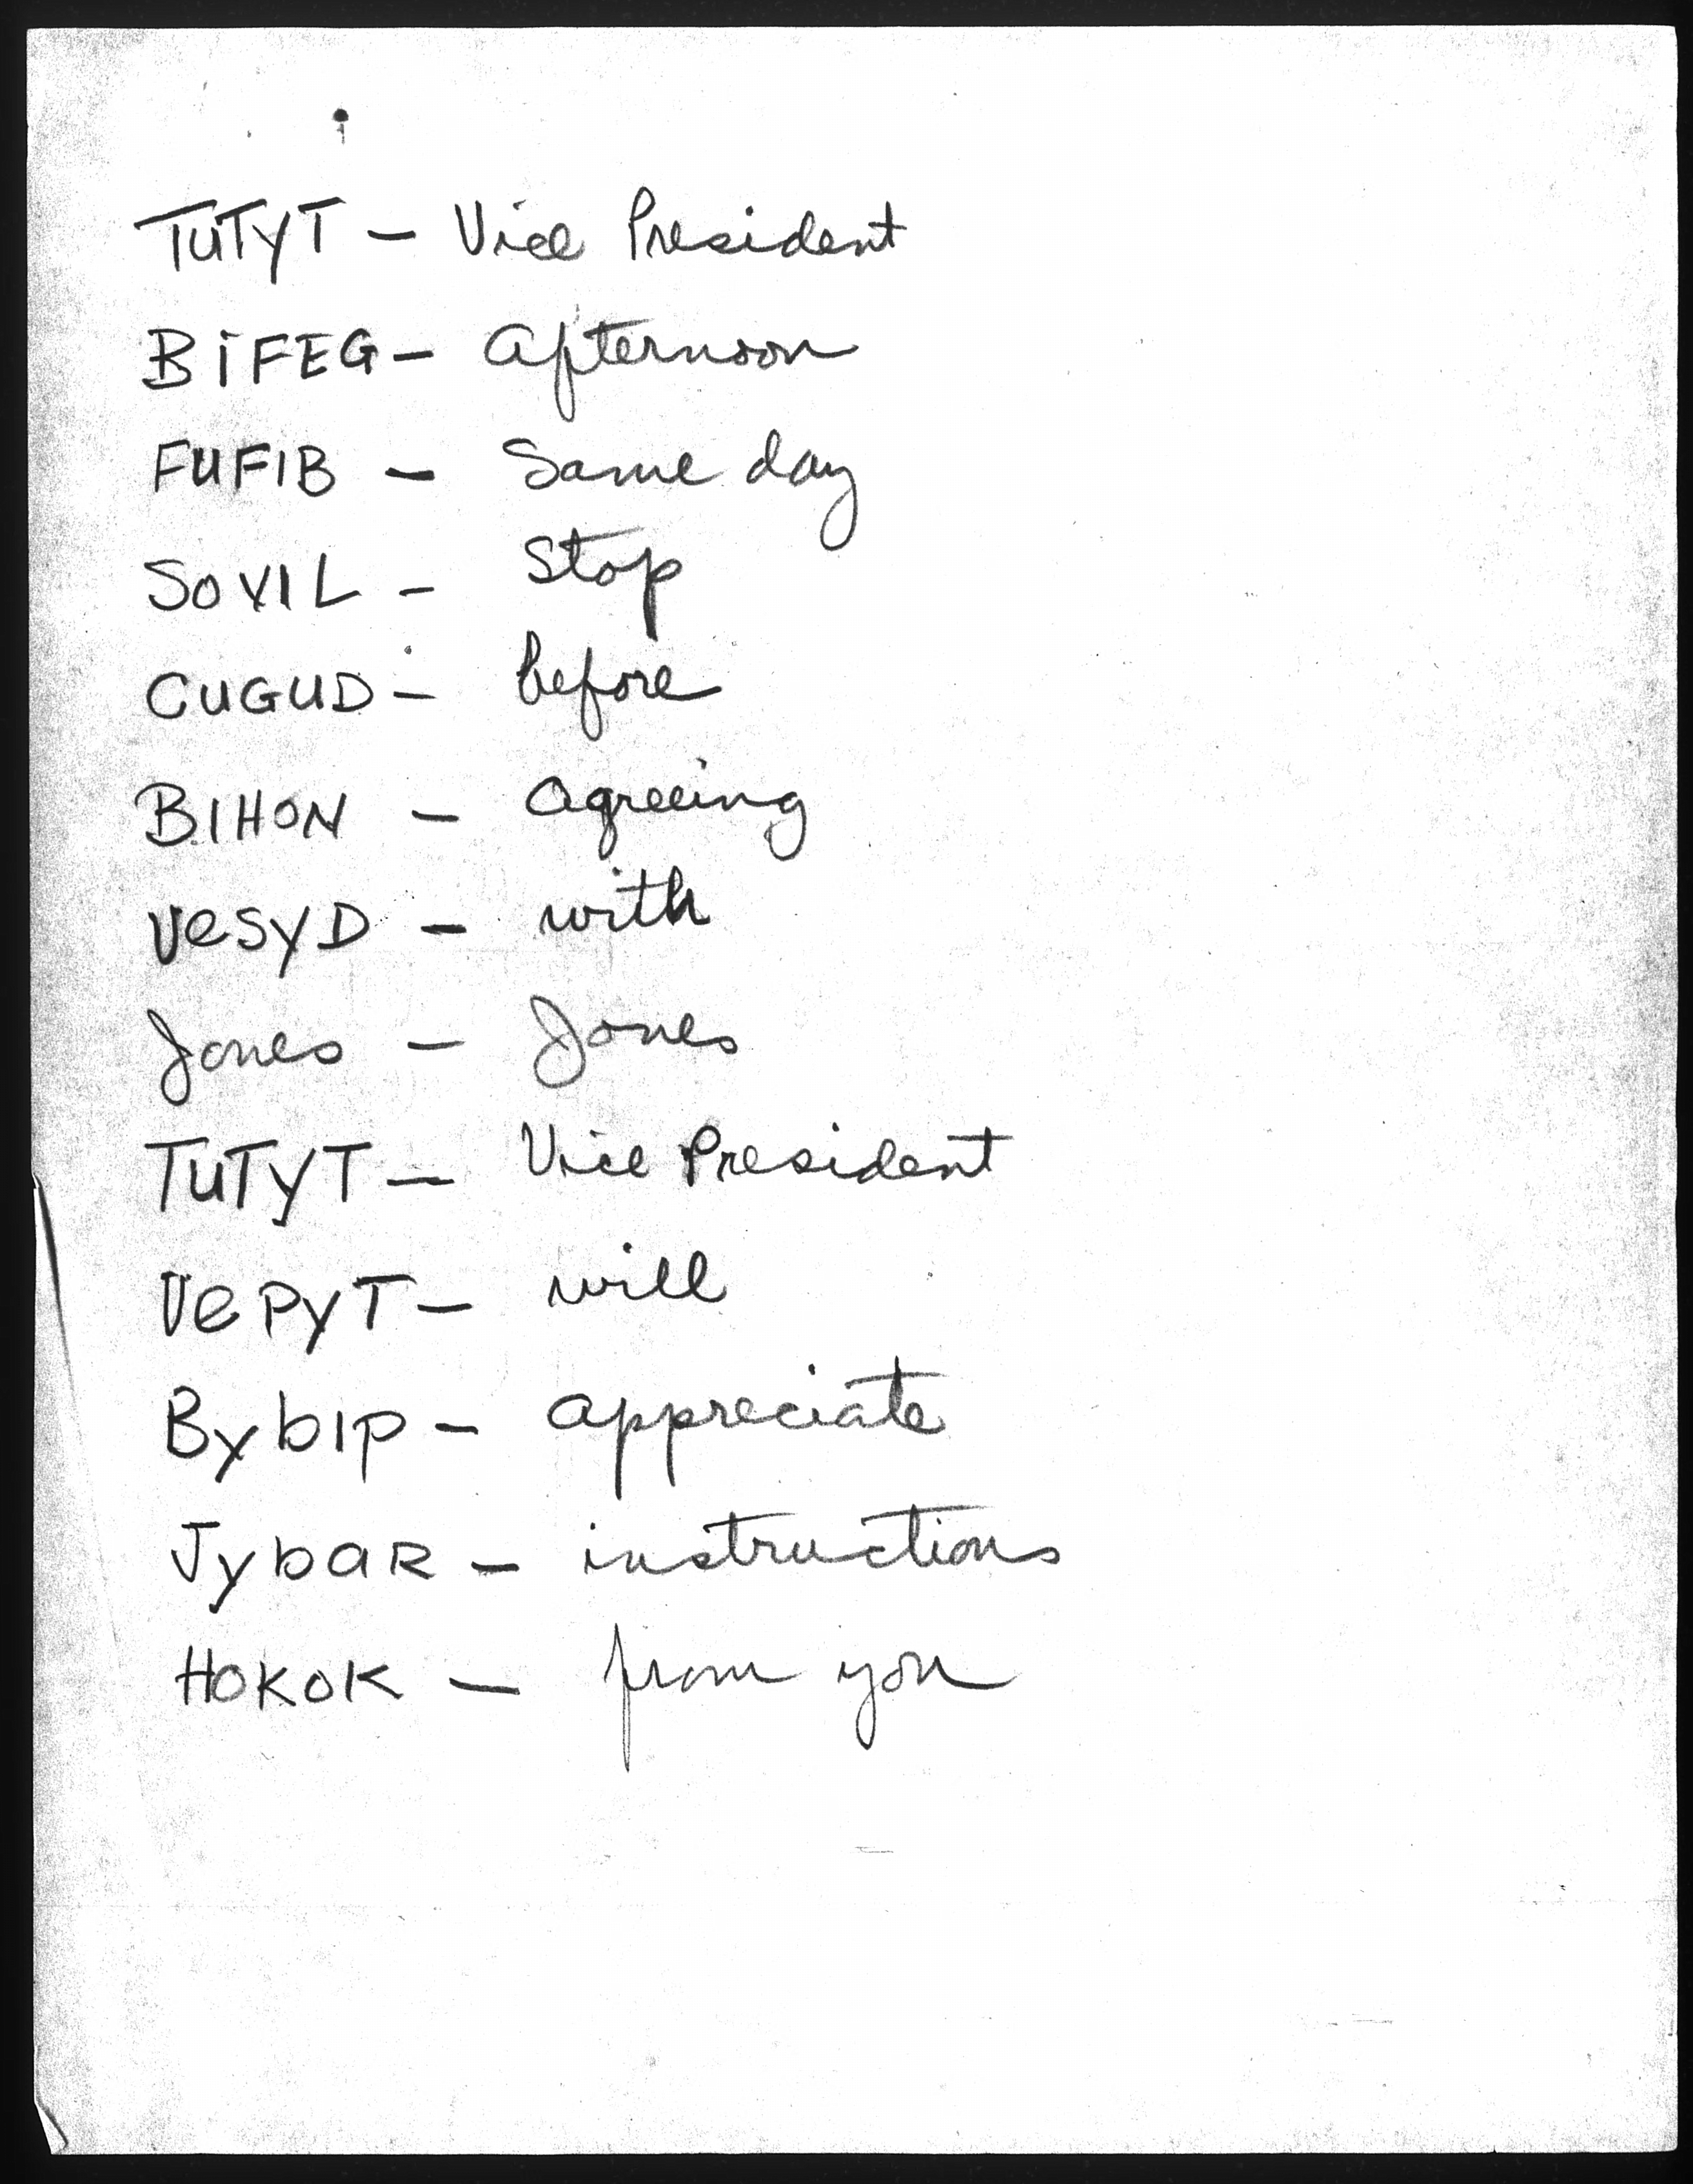 TUTYT - Vice President
BIFEG - Afternoon
FUFIB - Same day
SOVIL - Stop
CUGUD - before
BIHON - Agreeing
VeSYD - with
Jones - Jones
TUTYT - Vice President
VePYT - will
BybIP - appreciate
JybaR - instructions
HOKOK - from you